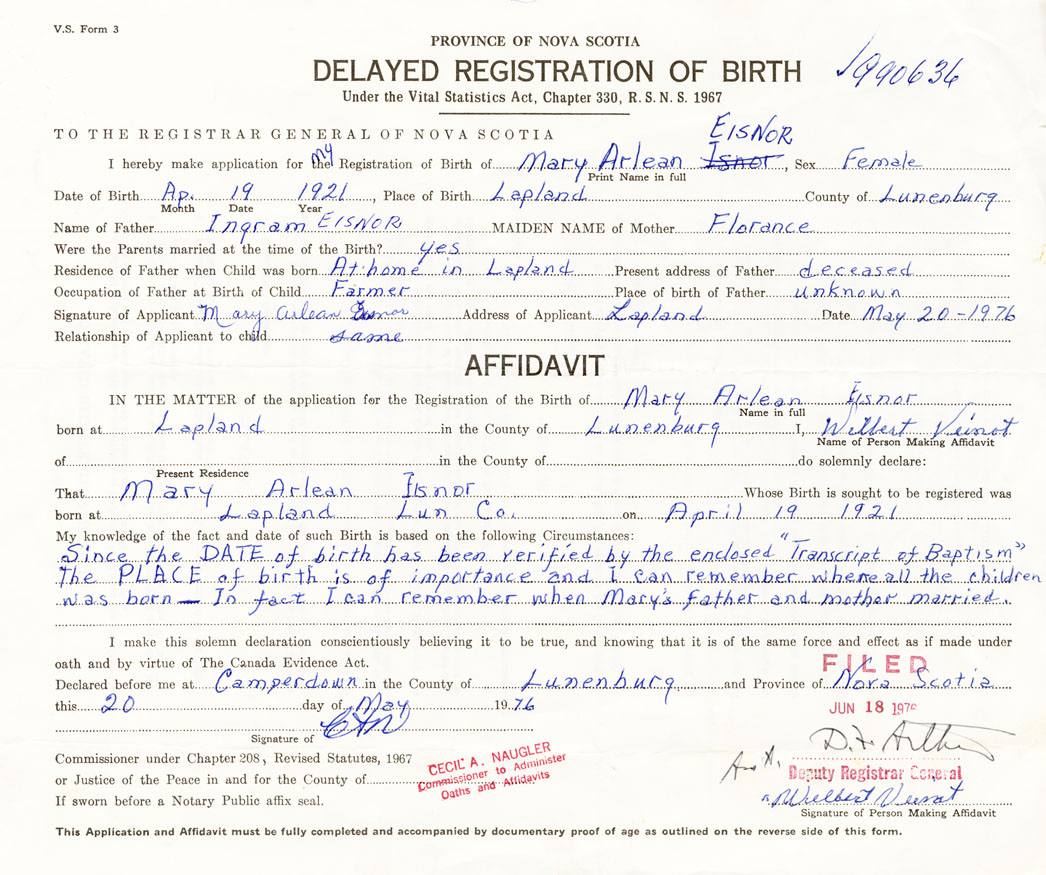 V.S. Form 3
PROVINCE OF NOVA SCOTIA
DELAYED REGISTRATION OF BIRTH
990636
Under the Vital Statistics Act, Chapter 330, R.S.N.S. 1967
TO THE REGISTRAR GENERAL OF NOVA SCOTIA
EISNOR
I hereby make application for the my Registration of Birth of Mary Arlean Isnor, Sex Female
Print Name in full
Date of Birth Ap. 19 1921, Place of Birth Lapland County of Lunenburg
Month Date Year
Name of Father Ingram EISNOR MAIDEN NAME of Mother Florance
Were the Parents married at the time of the Birth? yes
Residence of Father when Child was born At home in Lapland Present address of Father deceased
Occupation of Father at Birth of Child Farmer Place of birth of Father unknown
Signature of Applicant Mary Arlean Eisnor Address of Applicant Lapland Date May 20-1976
Relationship of Applicant to child same
AFFIDAVIT
IN THE MATTER of the application for the Registration of the Birth of Mary Arlean Eisnor
Name in full
born at Lapland in the County of Lunenburg I, Wilbert Veinot
Name of Person Making Affidavit
of in the County of do solemnly declare:
Present Residence
That Mary Arlean Isnor Whose Birth is sought to be registered was
born at Lapland Lun Co. on April 19 1921
My knowledge of the fact and date of such Birth is based on the following Circumstances:
Since the DATE of birth has been verified by the enclosed "Transcript of Baptism"
the PLACE of birth is of importance and I can remember where all the children
was born — In fact I can remember when Mary's father and mother married.
I make this solemn declaration conscientiously believing it to be true, and knowing that it is of the same force and effect as if made under
oath and by virtue of The Canada Evidence Act.
FILED
Declared before me at Camperdown in the County of Lunenburg and Province of Nova Scotia
this 20 day of May 1976
JUN 18 1976
CAN
Signature of
Commissioner under Chapter 208, Revised Statutes, 1967
or Justice of the Peace in and for the County of
If sworn before a Notary Public affix seal.
CECIL A. NAUGLER
Commissioner to Administer
Oaths and Affidavits
Deputy Registrar General
Wilbert Veinot
Signature of Person Making Affidavit
This Application and Affidavit must be fully completed and accompanied by documentary proof of age as outlined on the reverse side of this form.